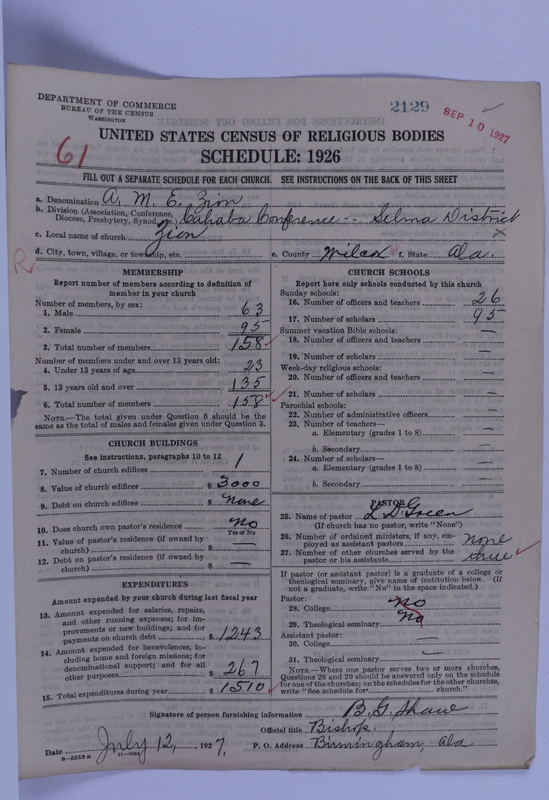 DEPARTMENT OF COMMERCE
BUREAU OF THE CENSUS
WASHINGTON
2129
SEP 10 1927
UNITED STATES CENSUS OF RELIGIOUS BODIES
61
SCHEDULE: 1926
FILL OUT A SEPARATE SCHEDULE FOR EACH CHURCH. SEE INSTRUCTIONS ON THE BACK OF THIS SHEET
a. Denomination A. M. E. Zion
b. Division (Association, Conference, Diocese, Presbytery, Synod, etc.) Cahaba Conference -- Selma District
c. Local name of church Zion
d. City, town, village, or township, etc. e. County Wilcox f. State Ala.
R
MEMBERSHIP
Report number of members according to definition of
member in your church
Number of members, by sex:
1. Male 63
2. Female 95
3. Total number of members 158
Number of members under and over 13 years old:
4. Under 13 years of age 23
5. 13 years old and over 135
6. Total number of members 158
NOTE.—The total given under Question 6 should be the
same as the total of males and females given under Question 3.
CHURCH BUILDINGS
See instructions, paragraphs 10 to 12
7. Number of church edifices 1
8. Value of church edifices $ 3000
9. Debt on church edifices $ None
10. Does church own pastor's residence No
Yes or No
11. Value of pastor's residence (if owned by
church) $ —
12. Debt on pastor's residence (if owned by
church) $ —
EXPENDITURES
Amount expended by your church during last fiscal year
13. Amount expended for salaries, repairs,
and other running expenses; for im-
provements or new buildings; and for
payments on church debt $ 1243
14. Amount expended for benevolences, in-
cluding home and foreign missions; for
denominational support; and for all
other purposes $ 267
15. Total expenditures during year $ 1510
CHURCH SCHOOLS
Report here only schools conducted by this church
Sunday schools:
16. Number of officers and teachers 26
17. Number of scholars 95
Summer vacation Bible schools:
18. Number of officers and teachers —
19. Number of scholars —
Week-day religious schools:
20. Number of officers and teachers —
21. Number of scholars —
Parochial schools:
22. Number of administrative officers —
23. Number of teachers—
a. Elementary (grades 1 to 8) —
b. Secondary —
24. Number of scholars—
a. Elementary (grades 1 to 8) —
b. Secondary —
PASTOR
25. Name of pastor L D Green
(If church has no pastor, write "None")
26. Number of ordained ministers, if any, em-
ployed as assistant pastors None
27. Number of other churches served by the
pastor or his assistants
If pastor (or assistant pastor) is a graduate of a college or
theological seminary, give name of institution below. (If
not a graduate, write "No" in the space indicated.)
Pastor:
28. College No
29. Theological seminary No
Assistant pastor:
30. College —
31. Theological seminary —
NOTE.—Where one pastor serves two or more churches,
Questions 28 and 29 should be answered only on the schedule
for one of the churches; on the schedules for the other churches,
write "See schedule for church."
Signature of person furnishing information B. G. Shaw
Official title Bishop
Date July 12, 1927. P. O. Address Birmingham, Ala